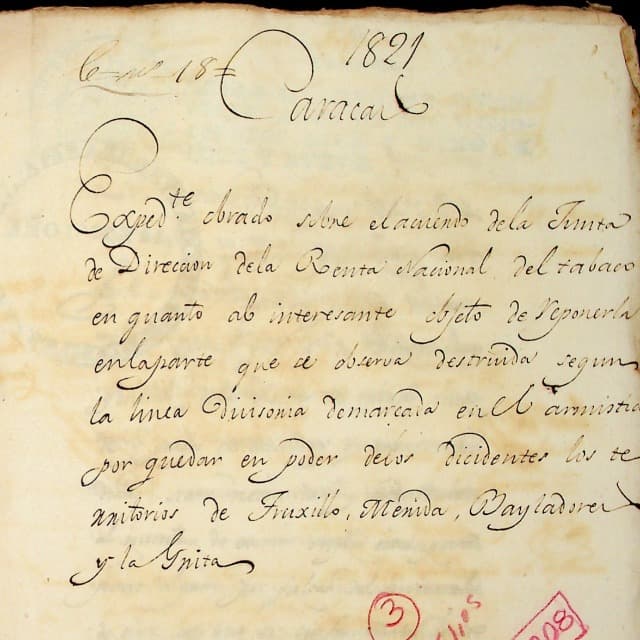 1821
18=
Caracas
Exped.te obrado sobre el acuerdo de la Junta
de Direccion de la Renta Nacional del tabaco
en quanto al interesante objeto de reponerla
en la parte que se observa destruida segun
la linea divisoria demarcada en el armistic
por quedar en poder de los dicidentes los te
rritorios de Truxillo, Merida, Bayladores
y la Grita
3